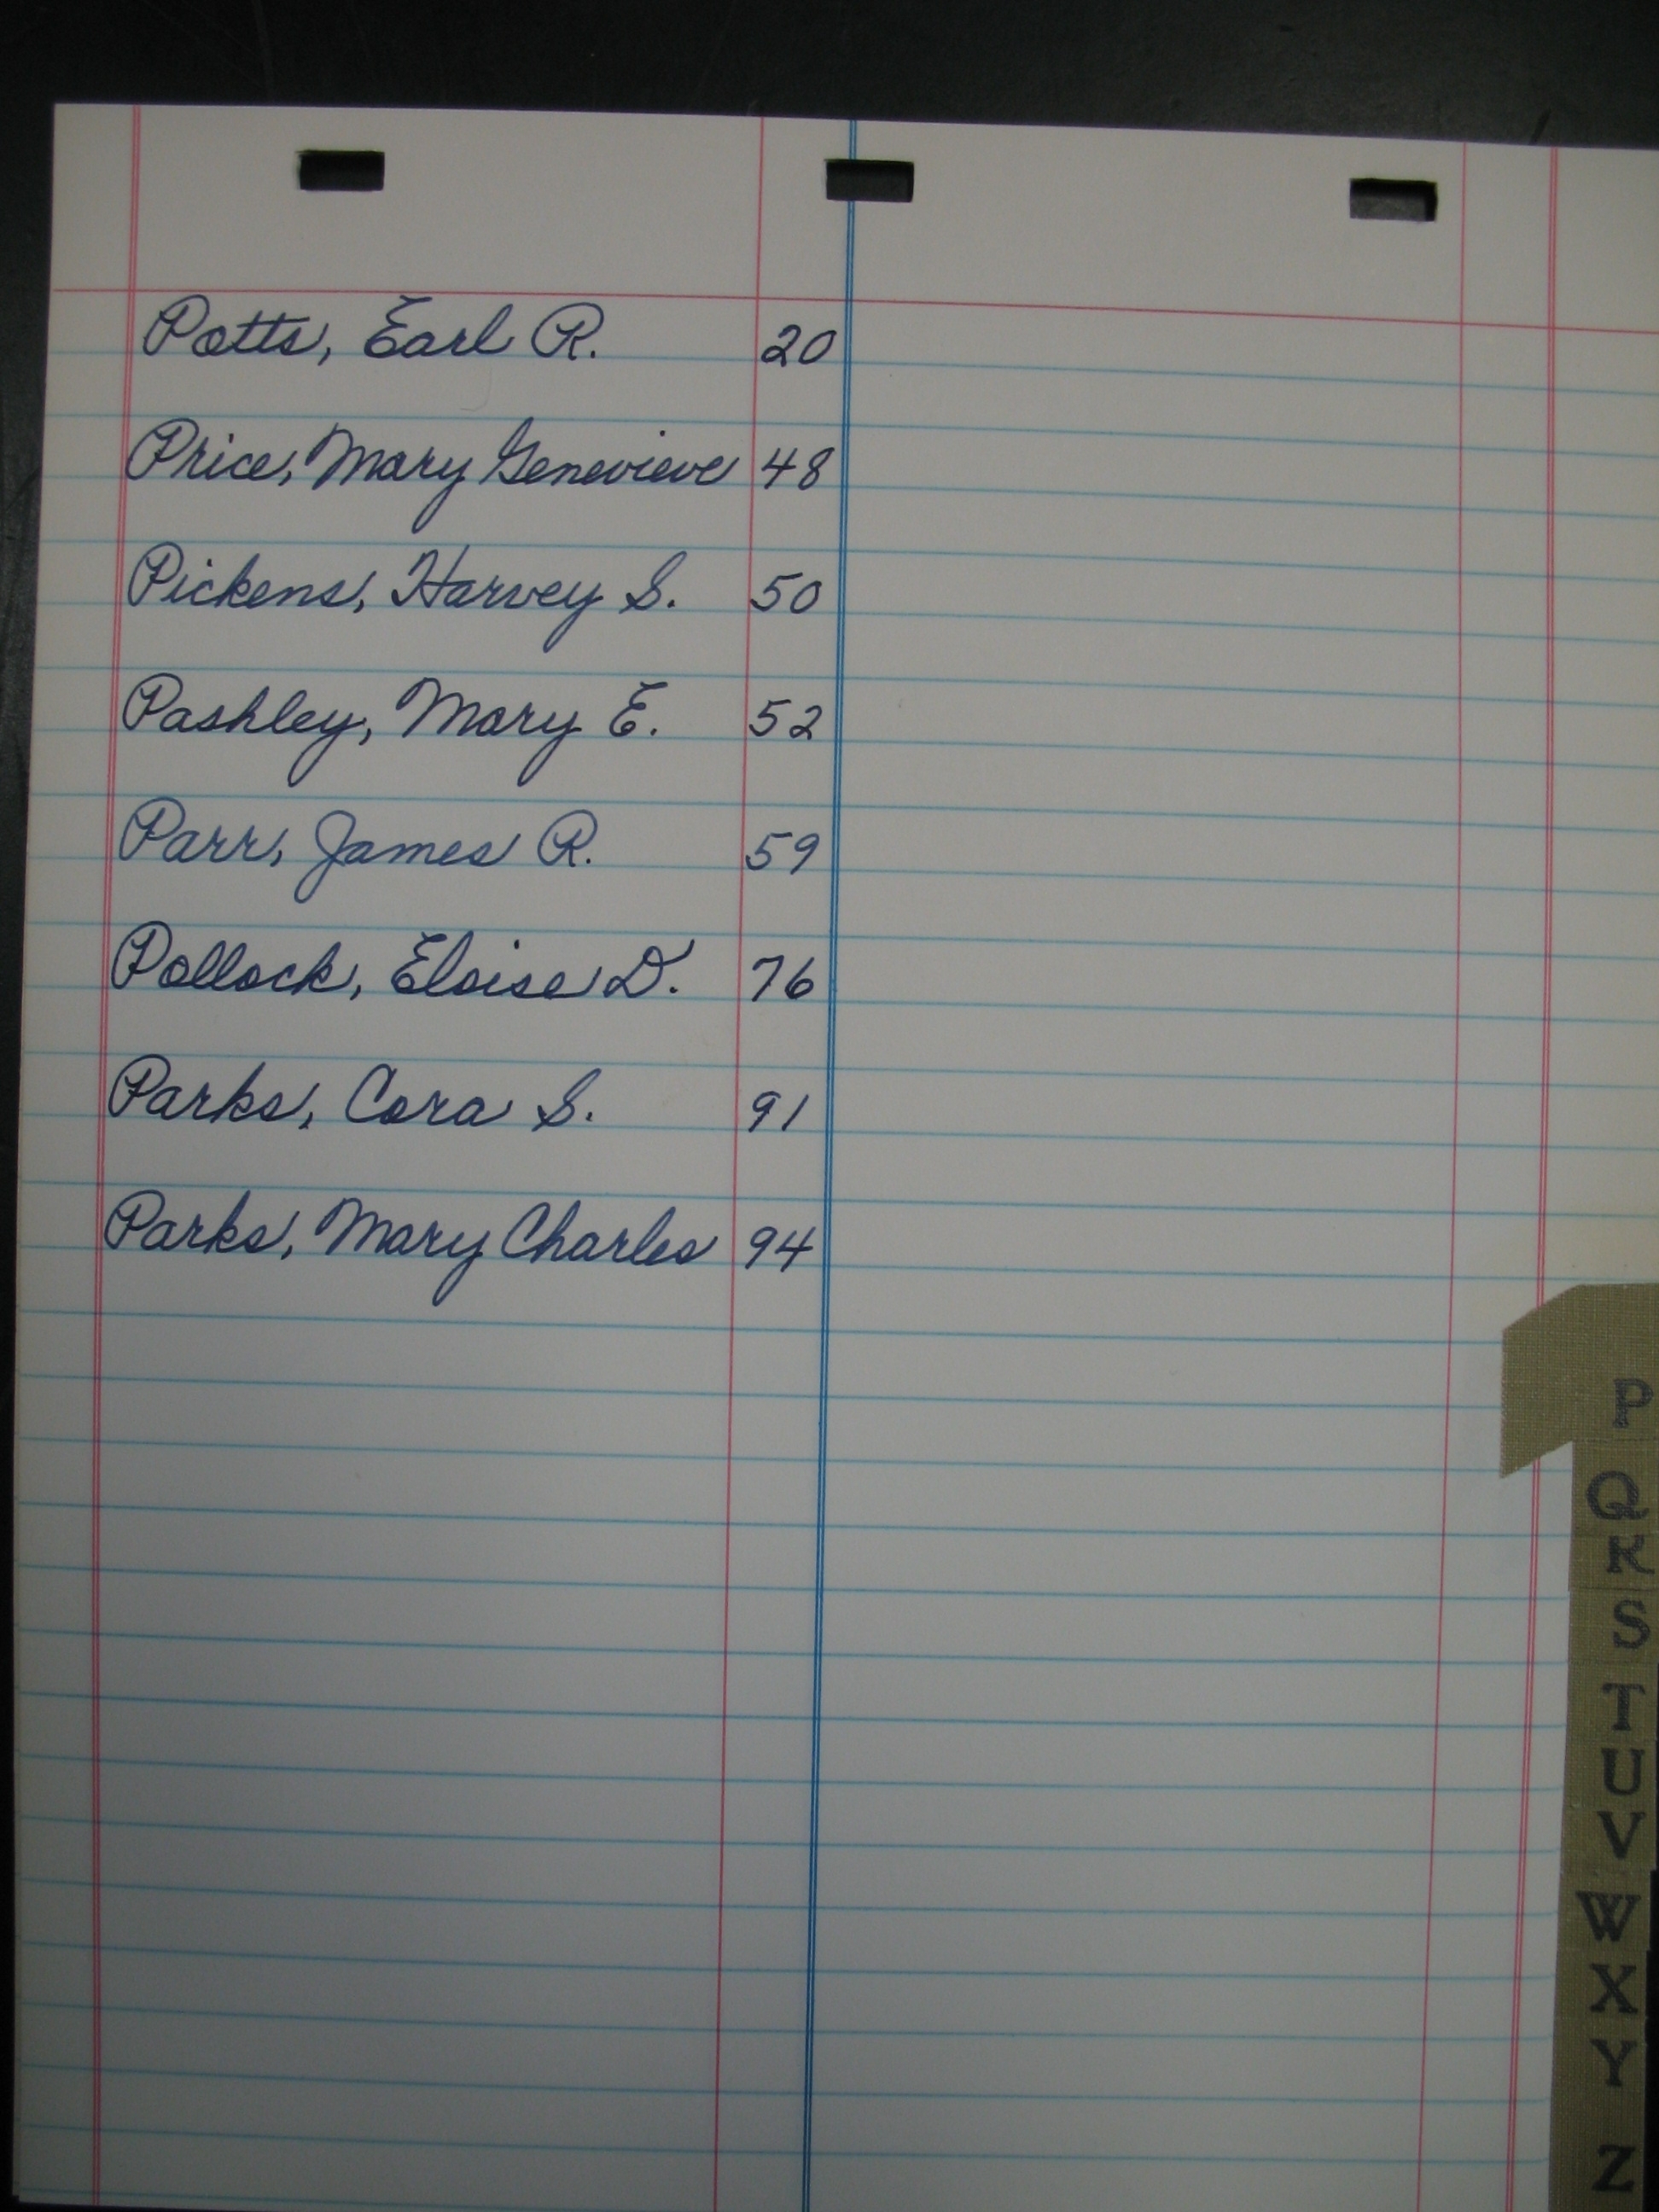 Potts, Earl R. 20
Price, Mary Genevieve 48
Pickens, Harvey S. 50
Pashley, Mary E. 52
Parr, James R. 59
Pollock, Eloise D. 76
Parks, Cora S. 91
Parks, Mary Charles 94
P
Q
R
S
T
U
V
W
X
Y
Z